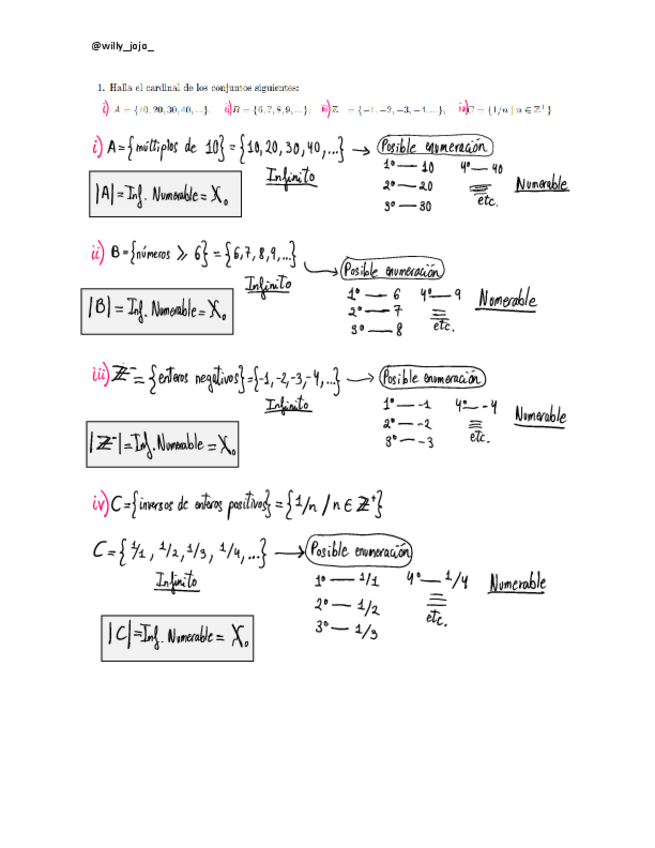 @willy_jojo_
1. Halla el cardinal de los conjuntos siguientes:
i) A = {10, 20, 30, 40, ...}, ii) B = {6, 7, 8, 9, ...}, iii) Z⁻ = {−1, −2, −3, −4, ...}, iv) C = {1/n | n ∈ Z⁺}
i) A = {múltiplos de 10} = {10, 20, 30, 40, ...} → Posible enumeración
Infinito
1º — 10 4º — 40
2º — 20
3º — 30 etc.
Numerable
|A| = Inf. Numerable = ℵ₀
ii) B = {números ⩾ 6} = {6, 7, 8, 9, ...} → Posible enumeración
Infinito
1º — 6 4º — 9
2º — 7
3º — 8 etc.
Numerable
|B| = Inf. Numerable = ℵ₀
iii) Z⁻ = {enteros negativos} = {-1, -2, -3, -4, ...} → Posible enumeración
Infinito
1º — -1 4º — -4
2º — -2
3º — -3 etc.
Numerable
|Z⁻| = Inf. Numerable = ℵ₀
iv) C = {inversos de enteros positivos} = {1/n / n ∈ Z⁺}
C = {1/1, 1/2, 1/3, 1/4, ...} → Posible enumeración
Infinito
1º — 1/1 4º — 1/4
2º — 1/2
3º — 1/3 etc.
Numerable
|C| = Inf. Numerable = ℵ₀